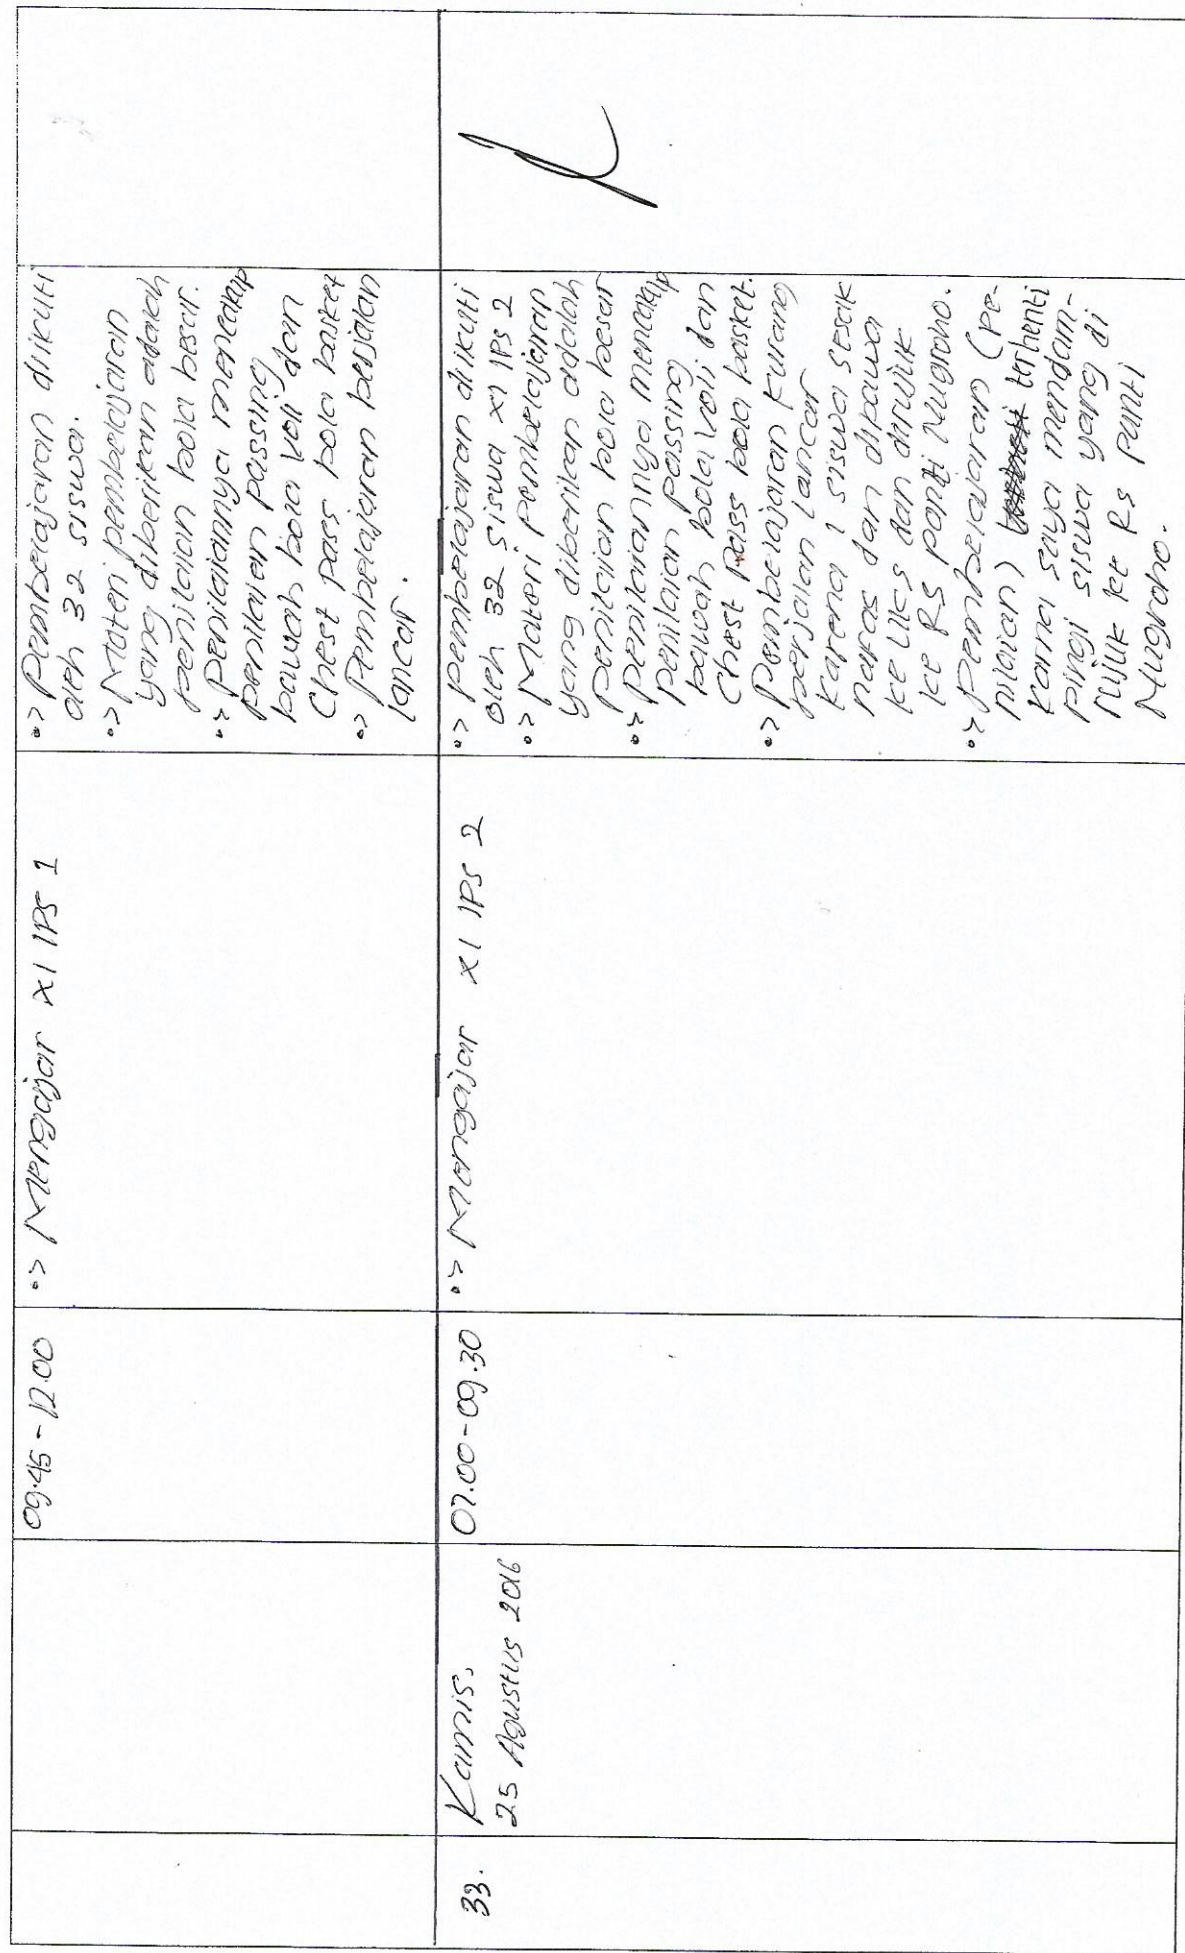 09.45 - 12.00
•> Mengajar XI IPS 1
•> Pembelajaran diikuti
oleh 32 siswa.
•> Materi pembelajaran
yang diberikan adalah
penilaian bola besar.
•> Penilaiannya mencakup
penilaian passing
bawah bola voli dan
Chest pass bola basket
•> Pembelajaran berjalan
lancar.
33.
Kamis,
25 Agustus 2016
07.00-09.30
•> Mengajar XI IPS 2
•> Pembelajaran diikuti
oleh 32 siswa XI IPS 2
•> Materi pembelajaran
yang diberikan adalah
penilaian bola besar
•> Penilaiannya mencakup
penilaian passing
bawah bola voli dan
Chest Pass bola basket.
•> Pembelajaran kurang
berjalan lancar
karena 1 siswa sesak
nafas dan dibawa
ke UKS dan dirujuk
ke RS panti Nugroho.
•> Pembelajaran (Pe-
nilaian) terhenti
karna saya mendam-
pingi siswa yang di
rujuk ke Rs panti
Nugroho.